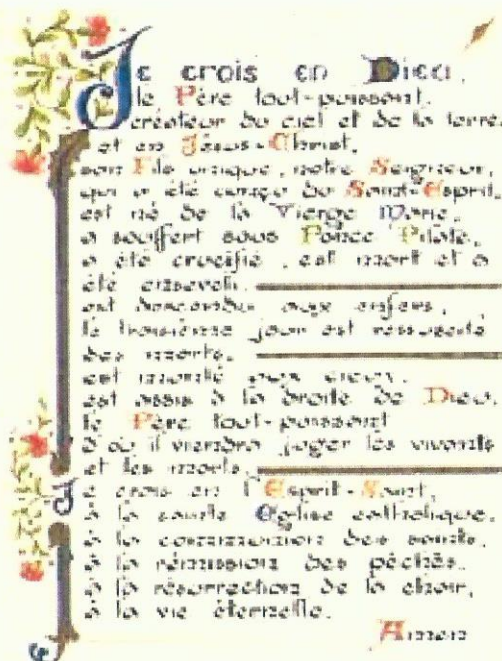 Je crois en Dieu,
le Père tout-puissant,
créateur du ciel et de la terre,
et en Jésus-Christ,
son Fils unique, notre Seigneur,
qui a été conçu du Saint-Esprit,
est né de la Vierge Marie,
a souffert sous Ponce Pilate,
a été crucifié, est mort et a
été enseveli.
est descendu aux enfers,
le troisième jour est ressuscité
des morts,
est monté aux cieux,
est assis à la droite de Dieu,
le Père tout-puissant
d'où il viendra juger les vivants
et les morts.
Je crois en l'Esprit-Saint,
à la sainte Eglise catholique,
à la communion des saints,
à la rémission des péchés,
à la résurrection de la chair,
à la vie éternelle.
Amen